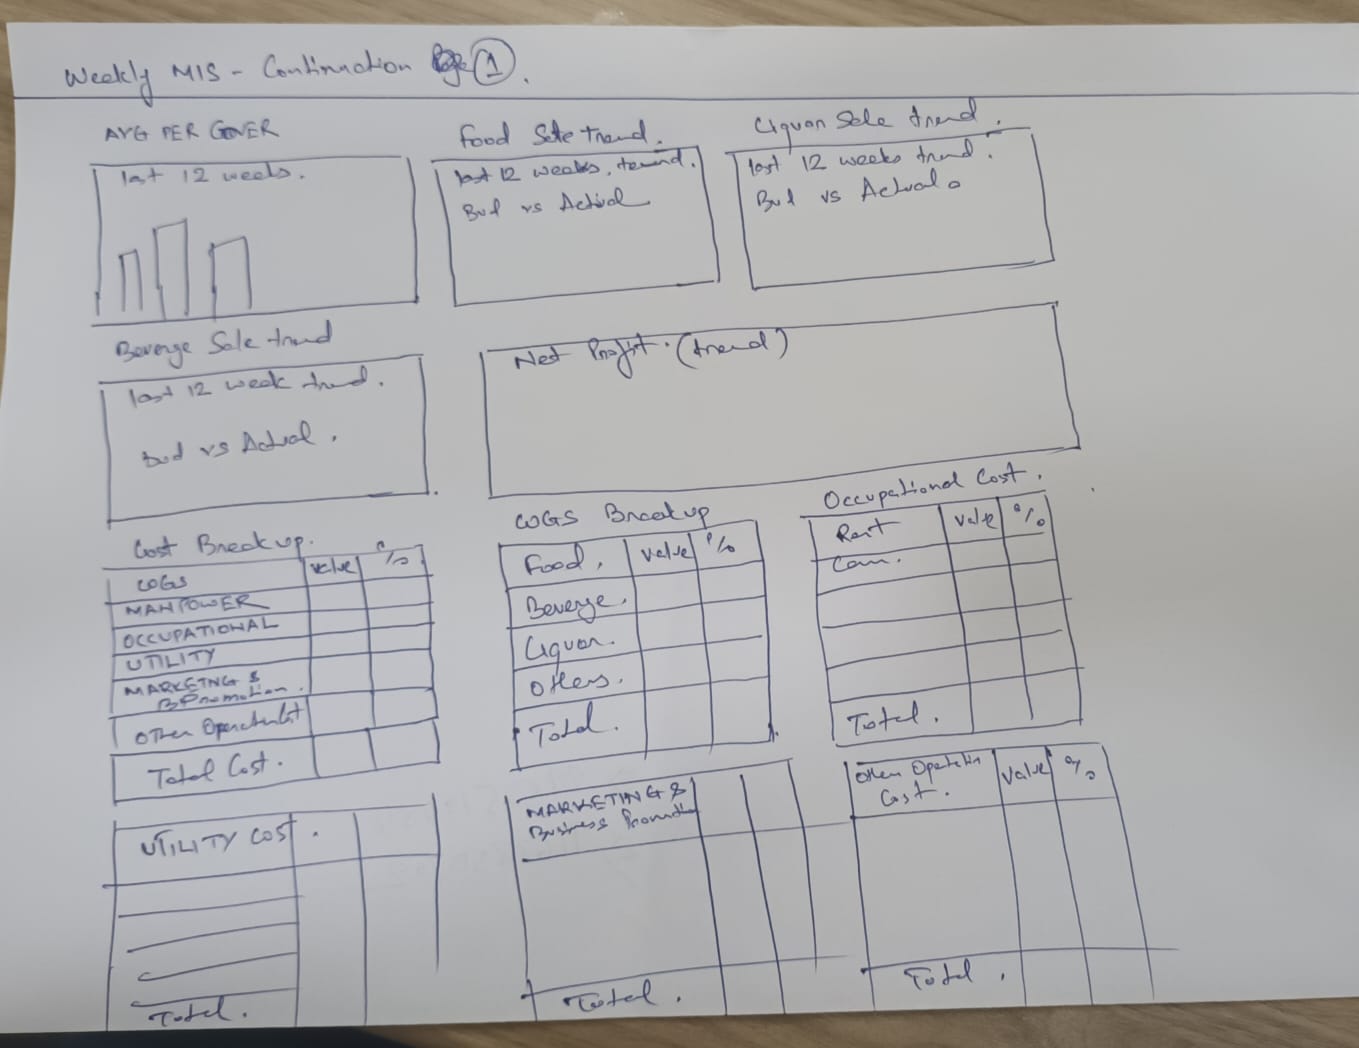 Weekly MIS - Continuation Page 1.
AVG PER COVER
last 12 weeks.
Food Sale trend.
last 12 weeks, trend.
Bud vs Actual
Liquor Sale trend.
last 12 weeks trend.
Bud vs Actual.
Beverge Sale trend
last 12 week trend.
Bud vs Actual.
Net Profit. (trend)
Cost Breakup.
value %
COGS
MANPOWER
OCCUPATIONAL
UTILITY
MARKETNG &
B Promotion.
Other Operational
Total Cost.
COGS Breakup
Food. value %
Beverge.
Liquor.
Others.
Total.
Occupational Cost.
Rent value %
Cam.
Total.
UTILITY COST.
Total.
MARKETING &
Business Promotion
Total.
Other Operation value %
Cost.
Total.